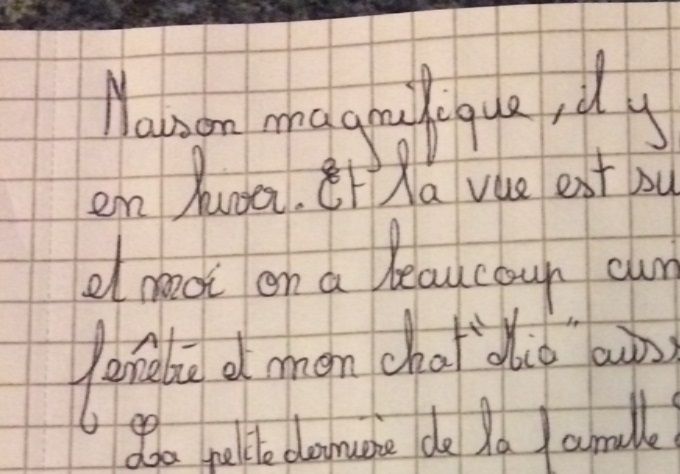 Maison magnifique, il y
en hiver. Et la vue est su
et moi on a beaucoup
fenêtre et mon chat " " auss
La petite dernière de la famille